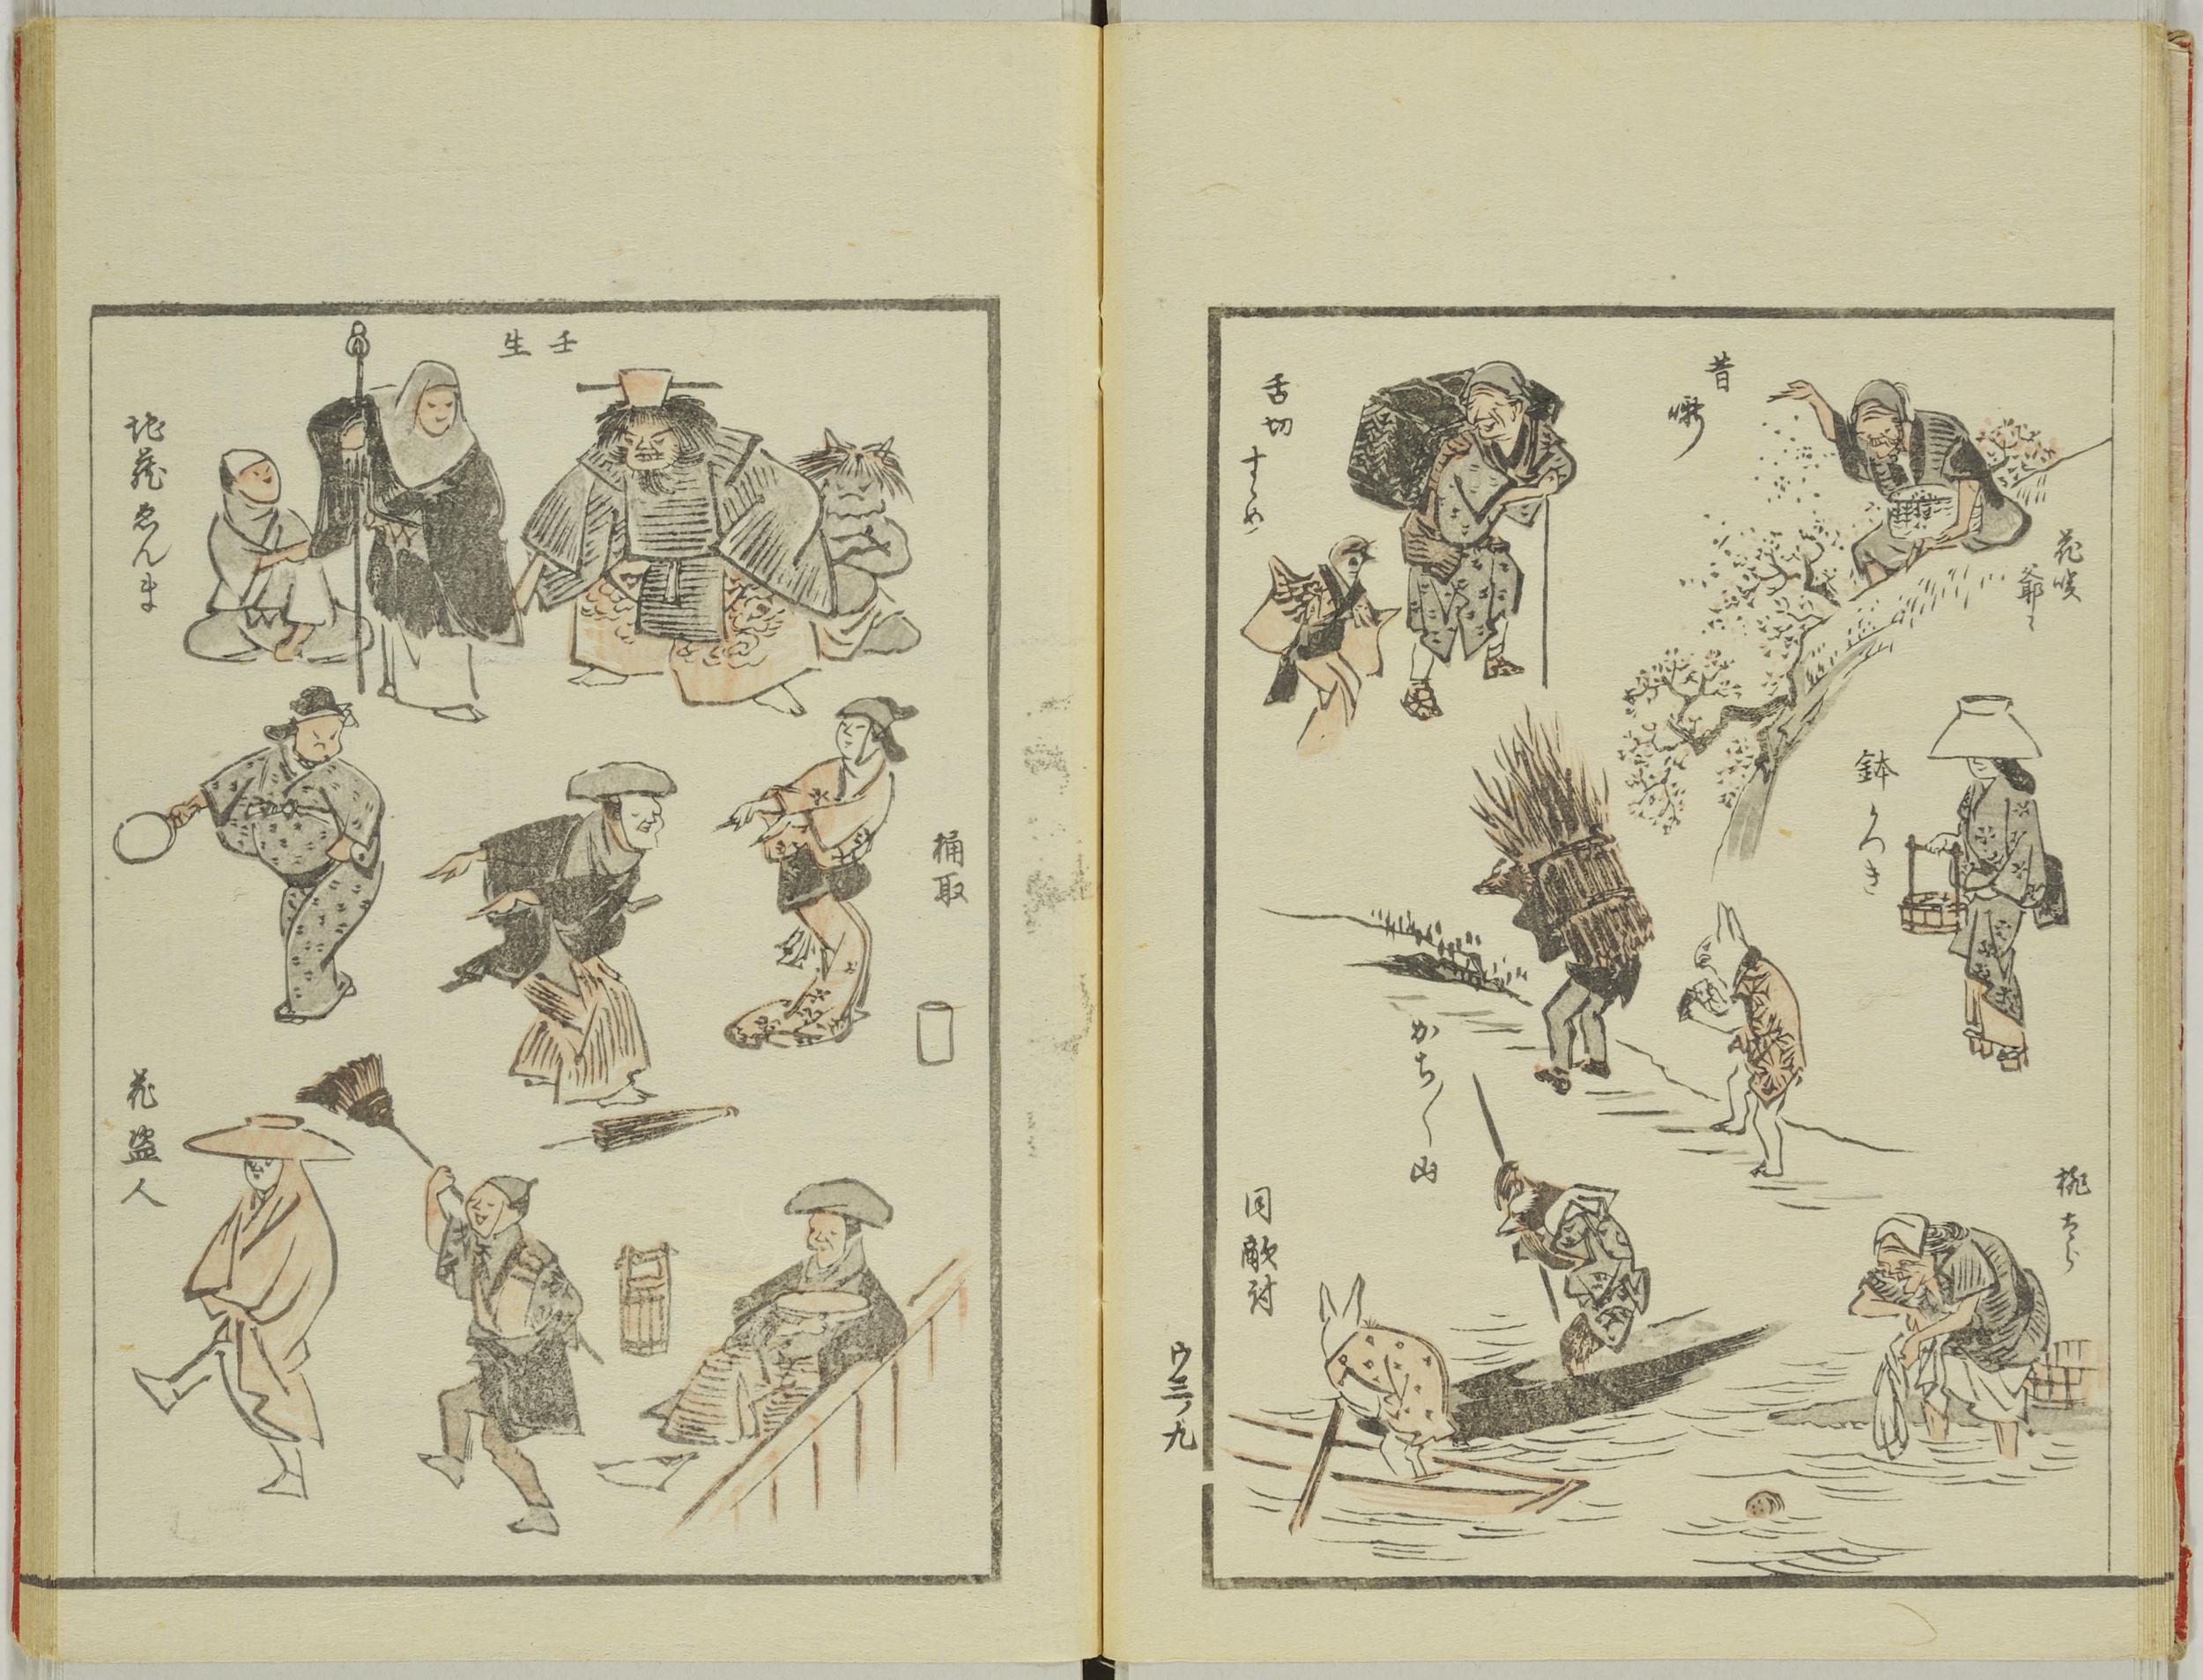 昔噺
花咲
爺〻
舌切
すゞめ
鉢かつき
かち〳〵山
桃太らう
同敵討
ウ三ノ九
壬生
地蔵ゑんま
桶取
花盗人